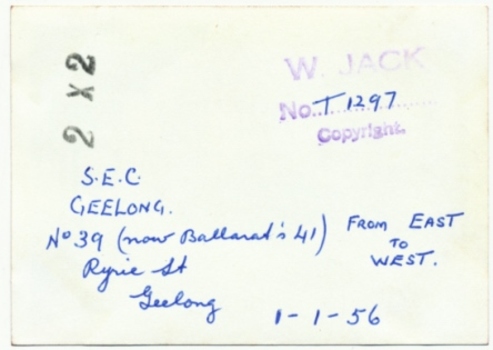 2 X 2
W. JACK
No. T 1297
Copyright.
S.E.C.
GEELONG.
No 39 (now Ballarat's 41)
Ryrie St
Geelong
FROM EAST
TO
WEST.
1-1-56